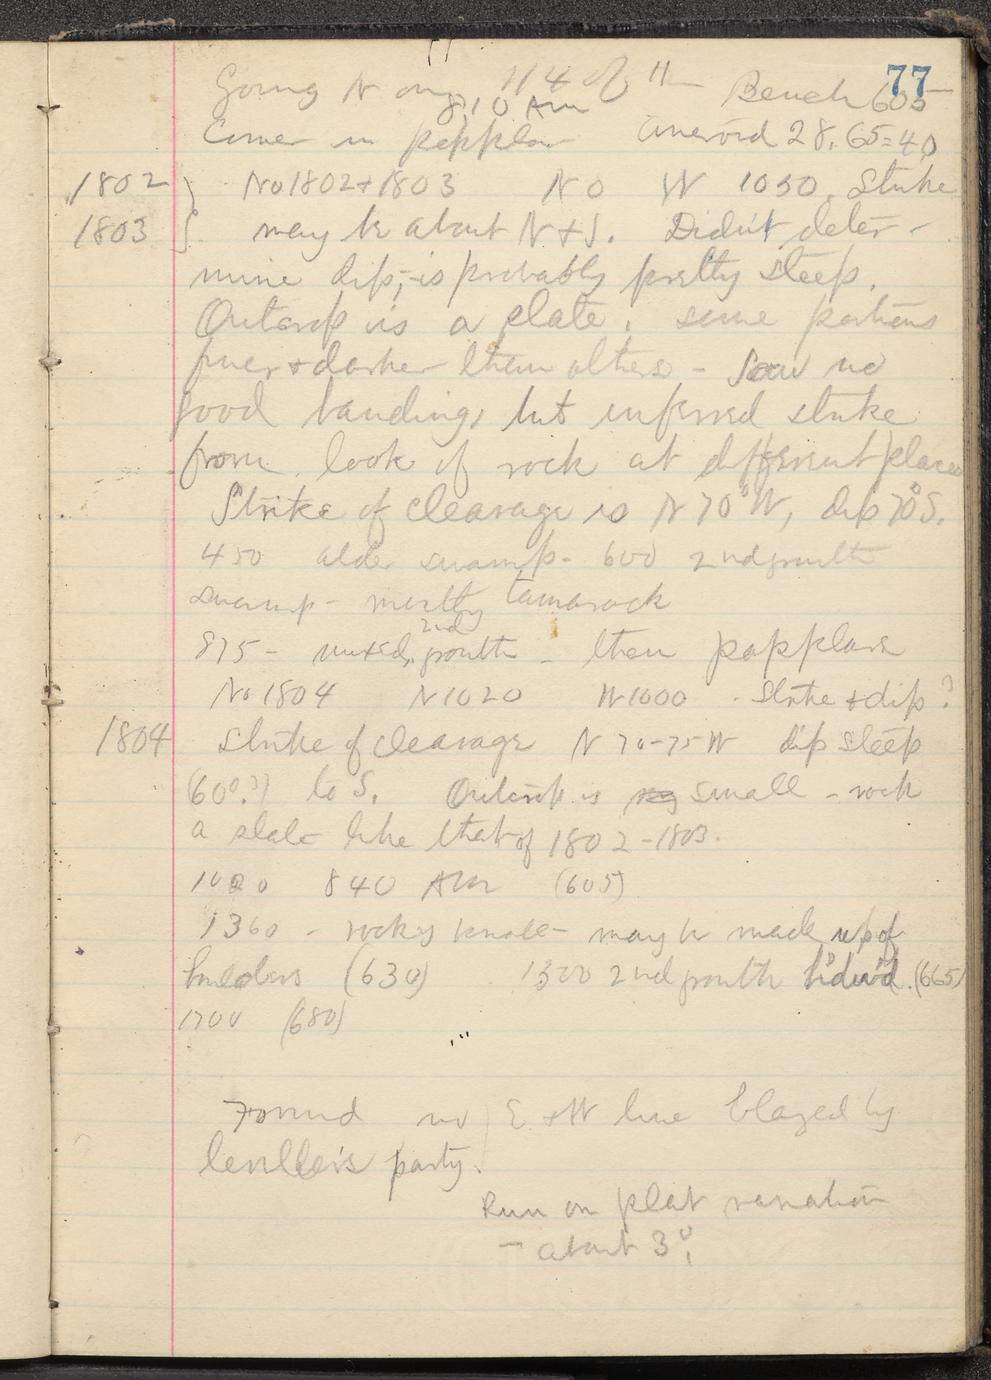 77
Going N on 1/4 of 11 - Bench 605
8.10 AM
Corner in popplar Aneroid 28.65=40
1802 } No 1802+1803 N 0 W 1050. Strike
1803 } may be about N+S. Didn't deter-
mine dip, - is probably pretty steep.
Outcrop is a slate. some portions
finer + darker than others - Saw no
good banding, but inferred strike
from look of rock at different places
Strike of cleavage is N 70° W, dip 70° S.
450 alder swamp - 600 2nd growth
swamp - mostly tamarack
875 - mixed 2nd growth - then popplar
No 1804 N 1020 W 1000 - Strike + dip?
1804 Strike of cleavage N 70-75 W dip steep
(60°?) to S. Outcrop is small - rock
a slate like that of 1802-1803.
1020 840 AM (605)
1360 - rocky knoll - may be made up of
bulders (630) 1500 2nd growth h'dw'd. (665)
1700 (680)
Found no E + W line blazed by
leveller's party.
Run on plat variation
- about 3°.